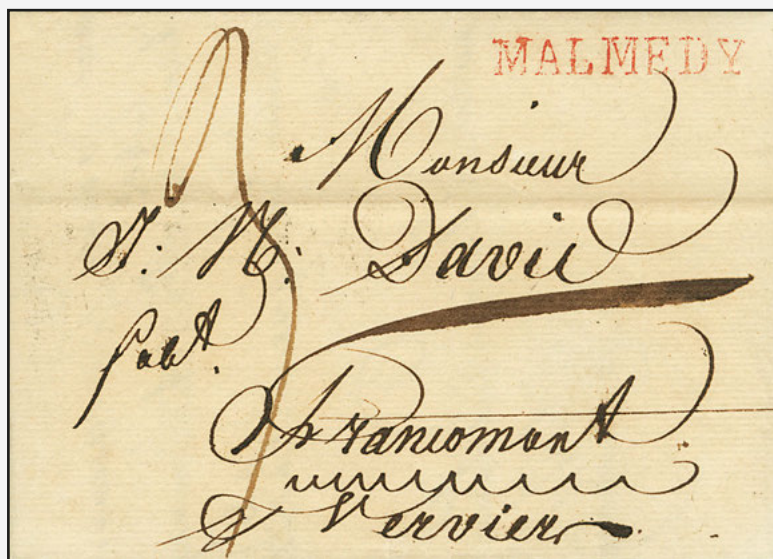 MALMEDY
Monsieur
J: N: David
fabt.
Francomont
Vervier